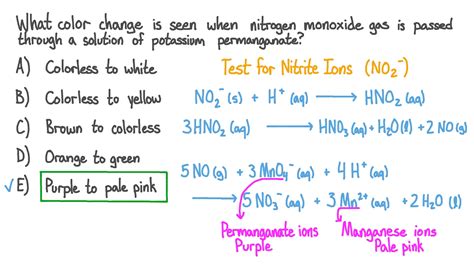 What color change is seen when nitrogen monoxide gas is passed
through a solution of potassium permanganate?
A) Colorless to white
B) Colorless to yellow
C) Brown to colorless
D) Orange to green
√E) Purple to pale pink
Test for Nitrite Ions (NO₂⁻)
NO₂⁻(s) + H⁺(aq) ⟶ HNO₂(aq)
3HNO₂(aq) ⟶ HNO₃(aq) + H₂O(l) + 2NO(g)
5NO(g) + 3MnO₄⁻(aq) + 4H⁺(aq)
⟶ 5NO₃⁻(aq) + 3Mn²⁺(aq) + 2H₂O(l)
Permanganate ions
Purple
Manganese ions
Pale pink